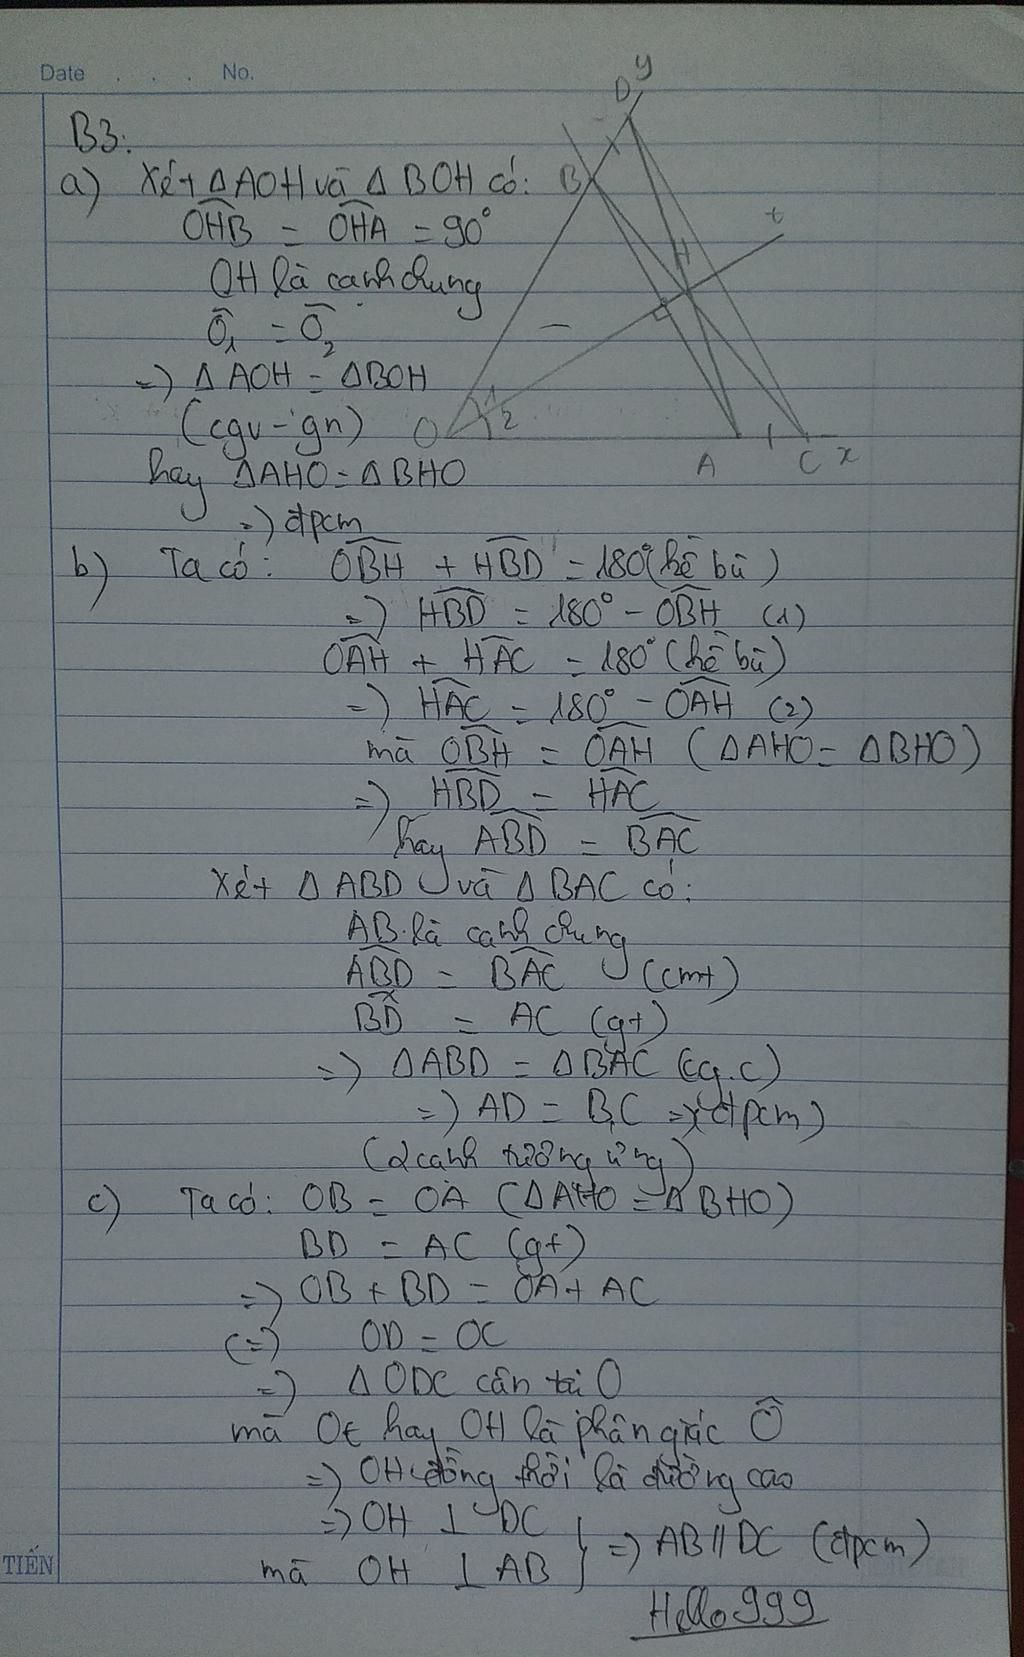 Date . . . No.
B3:
a) Xét ΔAOH và ΔBOH có:
OHB = OHA = 90°
OH là cạnh chung
O1 = O2
=) ΔAOH = ΔBOH
(cgv - gn)
hay ΔAHO = ΔBHO
=) đpcm
y
D
B
t
H
1
2
O
A
C
x
b) Ta có: OBH + HBD = 180° (kề bù)
=) HBD = 180° - OBH (1)
OAH + HAC = 180° (kề bù)
=) HAC = 180° - OAH (2)
mà OBH = OAH (ΔAHO = ΔBHO)
=) HBD = HAC
hay ABD = BAC
Xét ΔABD và ΔBAC có:
AB là cạnh chung
ABD = BAC (cmt)
BD = AC (gt)
=) ΔABD = ΔBAC (cg.c)
=) AD = BC =) (đpcm)
(2 cạnh tương ứng)
c) Ta có: OB = OA (ΔAHO = ΔBHO)
BD = AC (gt)
=) OB + BD = OA + AC
(=) OD = OC
=) ΔODC cân tại O
mà Ot hay OH là phân giác Ô
=) OH đồng thời là đường cao
=) OH ⊥ DC
mà OH ⊥ AB } =) AB // DC (đpcm)
TIẾN
Hello 999